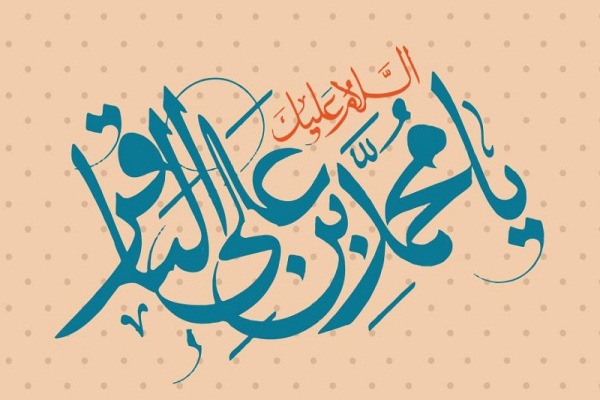 السَّلامُ عَلَيكَ
يا مُحَمَّدِ بنِ عَلیِ الباقِر